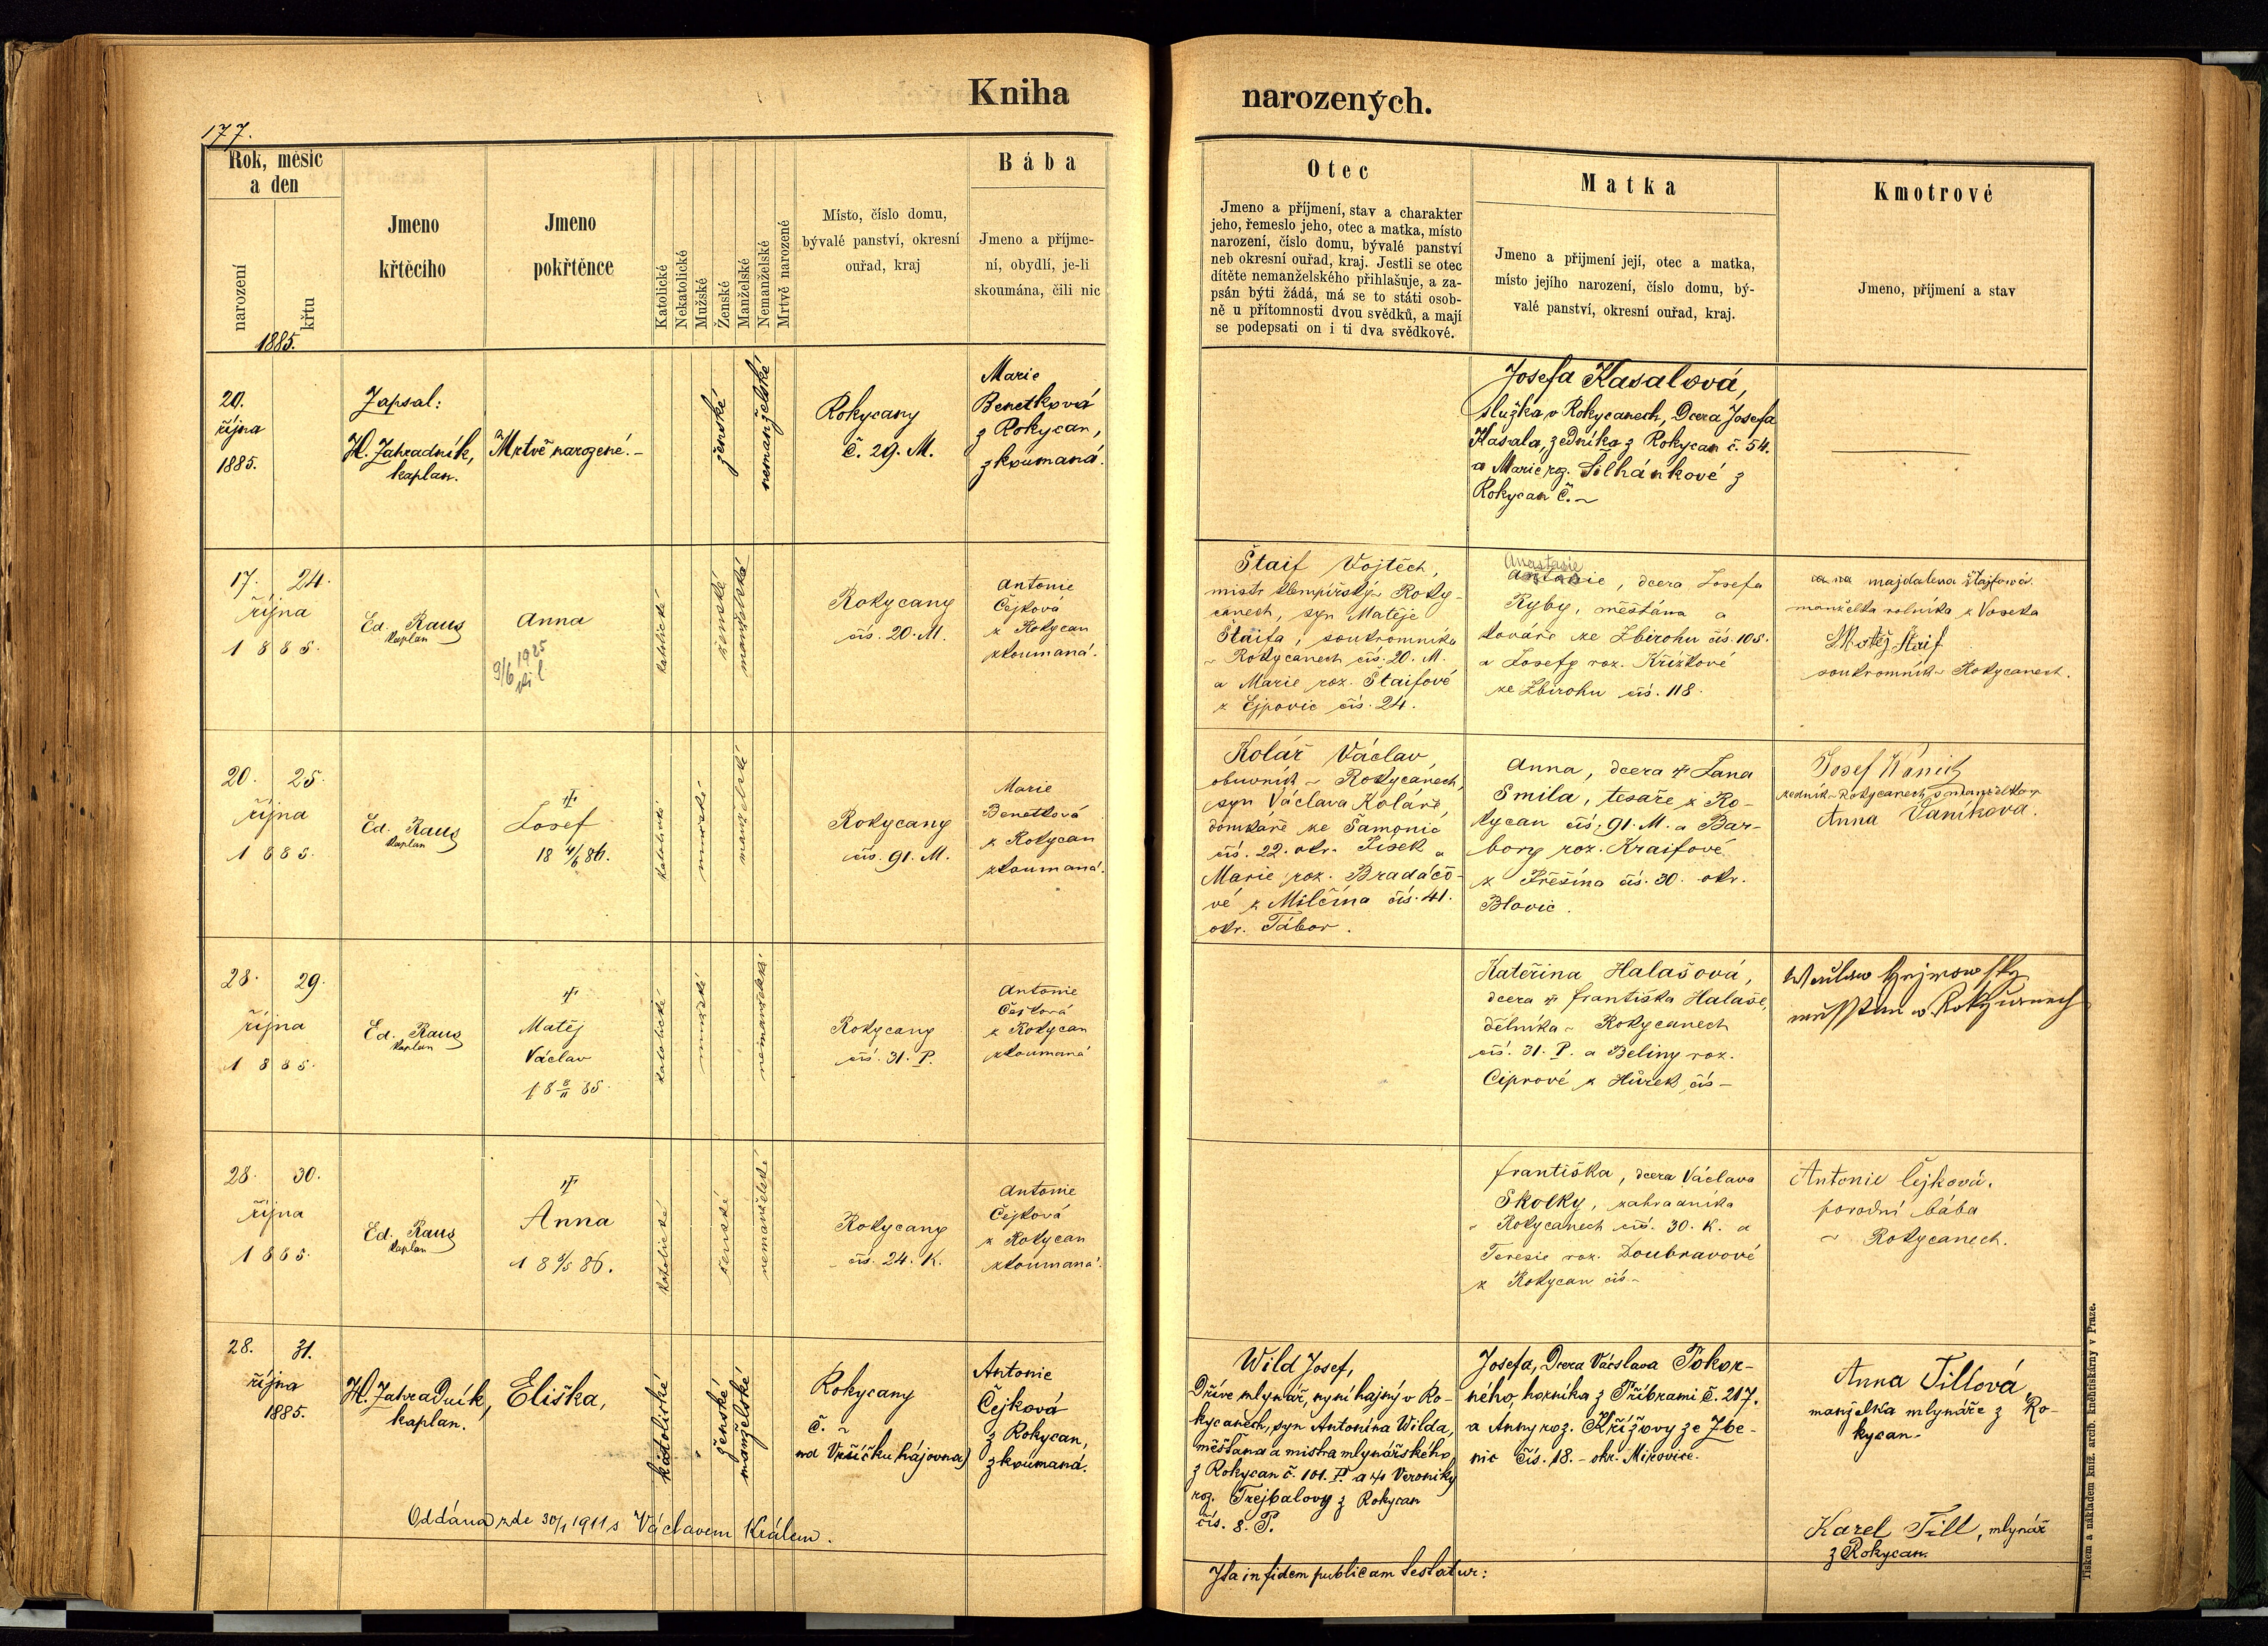 Kniha narozených.
177.
Rok, měsíc
a den
narození
křtu
1885.
Jmeno
křtěcího
Jmeno
pokřtěnce
Katolické
Nekatolické
Mužské
Ženské
Manželské
Nemanželské
Mrtvě narozené
Místo, číslo domu,
bývalé panství, okresní
ouřad, kraj
Bába
Jmeno a příjme-
ní, obydlí, je-li
skoumána, čili nic
Otec
Jmeno a příjmení, stav a charakter
jeho, řemeslo jeho, otec a matka, místo
narození, číslo domu, bývalé panství
neb okresní ouřad, kraj. Jestli se otec
dítěte nemanželského přihlašuje, a za-
psán býti žádá, má se to státi osob-
ně u přítomnosti dvou svědků, a mají
se podepsati on i ti dva svědkové.
Matka
Jmeno a přijmení její, otec a matka,
místo jejího narození, číslo domu, bý-
valé panství, okresní ouřad, kraj.
Kmotrové
Jmeno, příjmení a stav
20.
října
1885.
Zapsal:
H. Zahradník,
kaplan.
Mrtvě narozené. -
ženské
nemanželské
Rokycany
č. 29. M.
Marie
Benetková
z Rokycan,
zkoumaná.
Josefa Kasalová,
služka v Rokycanech, dcera Josefa
Kasala, zedníka z Rokycan č. 54.
a Marie roz. Šilhánkové z
Rokycan č. ~
17. 24.
října
1885.
Ed. Raus
kaplan
Anna
1925
9/6
katolické
ženské
manželské
Rokycany
čís. 20. M.
Antonie
Čejková
z Rokycan
zkoumaná.
Štaif Vojtěch,
mistr klempířský v Roky-
canech, syn Matěje
Štaifa, soukromníka
v Rokycanech čís. 20. M.
a Marie roz. Štaifové
z Ejpovic čís. 24.
Anastasie
Antonie, dcera Josefa
Ryby, měšťána a
kováře ze Zbirohu čís. 105.
a Josefy roz. Křížkové
ze Zbirohu čís. 118.
majdalena Štajfová
manželka rolníka z Voseka
Matěj Štaif
soukromník v Rokycanech.
20. 25.
října
1885.
Ed. Raus
kaplan
Josef
18 4/6 86.
katolické
mužské
manželské
Rokycany
čís. 91. M.
Marie
Benetková
z Rokycan
zkoumaná.
Kolář Václav,
obuvník v Rokycanech,
syn Václava Koláře,
domkáře ze Samonic
čís. 22. okr. Písek a
Marie roz. Bradáčo-
vé z Milčína čís. 41.
okr. Tábor.
Anna, dcera † Jana
Smila, tesaře z Ro-
kycan čís. 91. M. a Bar-
bory roz. Kraifové
z Přešína čís. 30. okr.
Blovic.
Josef Vaník
zedník v Rokycanech s manželkou
Anna Vaníková.
28. 29.
října
1885.
Ed. Raus
kaplan
Matěj
Václav
18 8/11 85.
katolické
mužské
nemanželské
Rokycany
čís. 31. P.
Antonie
Čejková
z Rokycan
zkoumaná
Kateřina Halašová,
dcera † Františka Halaše,
dělníka v Rokycanech
čís. 31. P. a Beliny roz.
Ciprové z Hůrek čís -
28. 30.
října
1885.
Ed. Raus
kaplan
Anna
18 /5 86.
katolické
ženské
nemanželské
Rokycany
čís. 24. K.
Antonie
Čejková
z Rokycan
zkoumaná.
Františka, dcera Václava
Skolky, zahradníka
v Rokycanech čís. 30. K. a
Teresie roz. Doubravové
z Rokycan čís -
Antonie Čejková.
porodní bába
v Rokycanech.
28. 31.
října
1885.
H. Zahradník,
kaplan.
Eliška,
katolické
ženské
manželské
Rokycany
č. ~
na Vršíčku hájovna)
Antonie
Čejková
z Rokycan,
zkoumaná.
Wild Josef,
Dříve mlynář, nyní hajný v Ro-
kycanech, syn Antonína Wilda,
měšťana a mistra mlynářského
z Rokycan č. 101. P. a † Veroniky
roz. Trejbalovy z Rokycan
čís. 8. P.
Josefa, Dcera Václava Pokor-
ného, horníka z Příbrami č. 217.
a Anny roz. Křížovy ze Zbe-
nic čís. 18. - okr. Mirovice.
Anna Tillová,
manželka mlynáře z Ro-
kycan.
Karel Till, mlynář
z Rokycan.
Oddána zde 30/1 1911 s Václavem Králem.
Ita in fidem publicam testatur:
Tiskem a nákladem kníž. arcib. knihtiskárny v Praze.